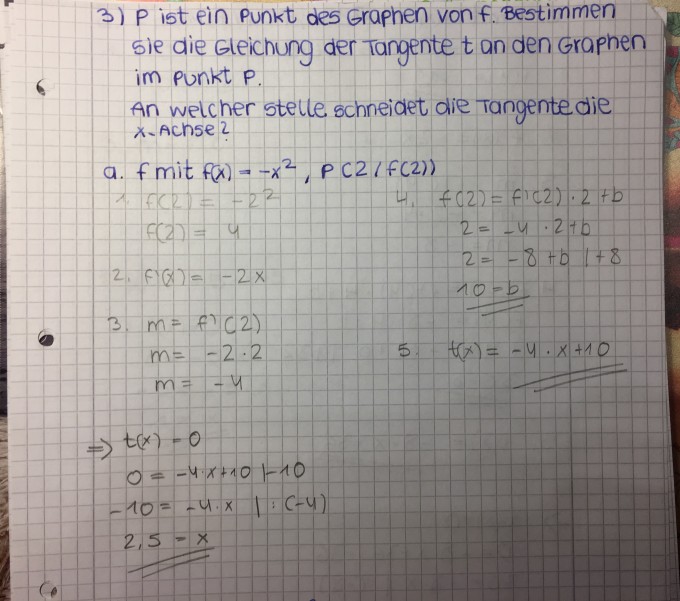 3) P ist ein Punkt des Graphen von f. Bestimmen
Sie die Gleichung der Tangente t an den Graphen
im Punkt P.
An welcher Stelle schneidet die Tangente die
x-Achse?
a. f mit f(x) = -x², P(2/f(2))
1. f(2) = -2²
f(2) = 4
2. f'(x) = -2x
3. m = f'(2)
m = -2·2
m = -4
4. f(2) = f'(2)·2+b
2 = -4·2+b
2 = -8+b |+8
10=b
5. t(x) = -4·x+10
=> t(x) = 0
0 = -4·x+10 |-10
-10 = -4·x |:(-4)
2,5 = x